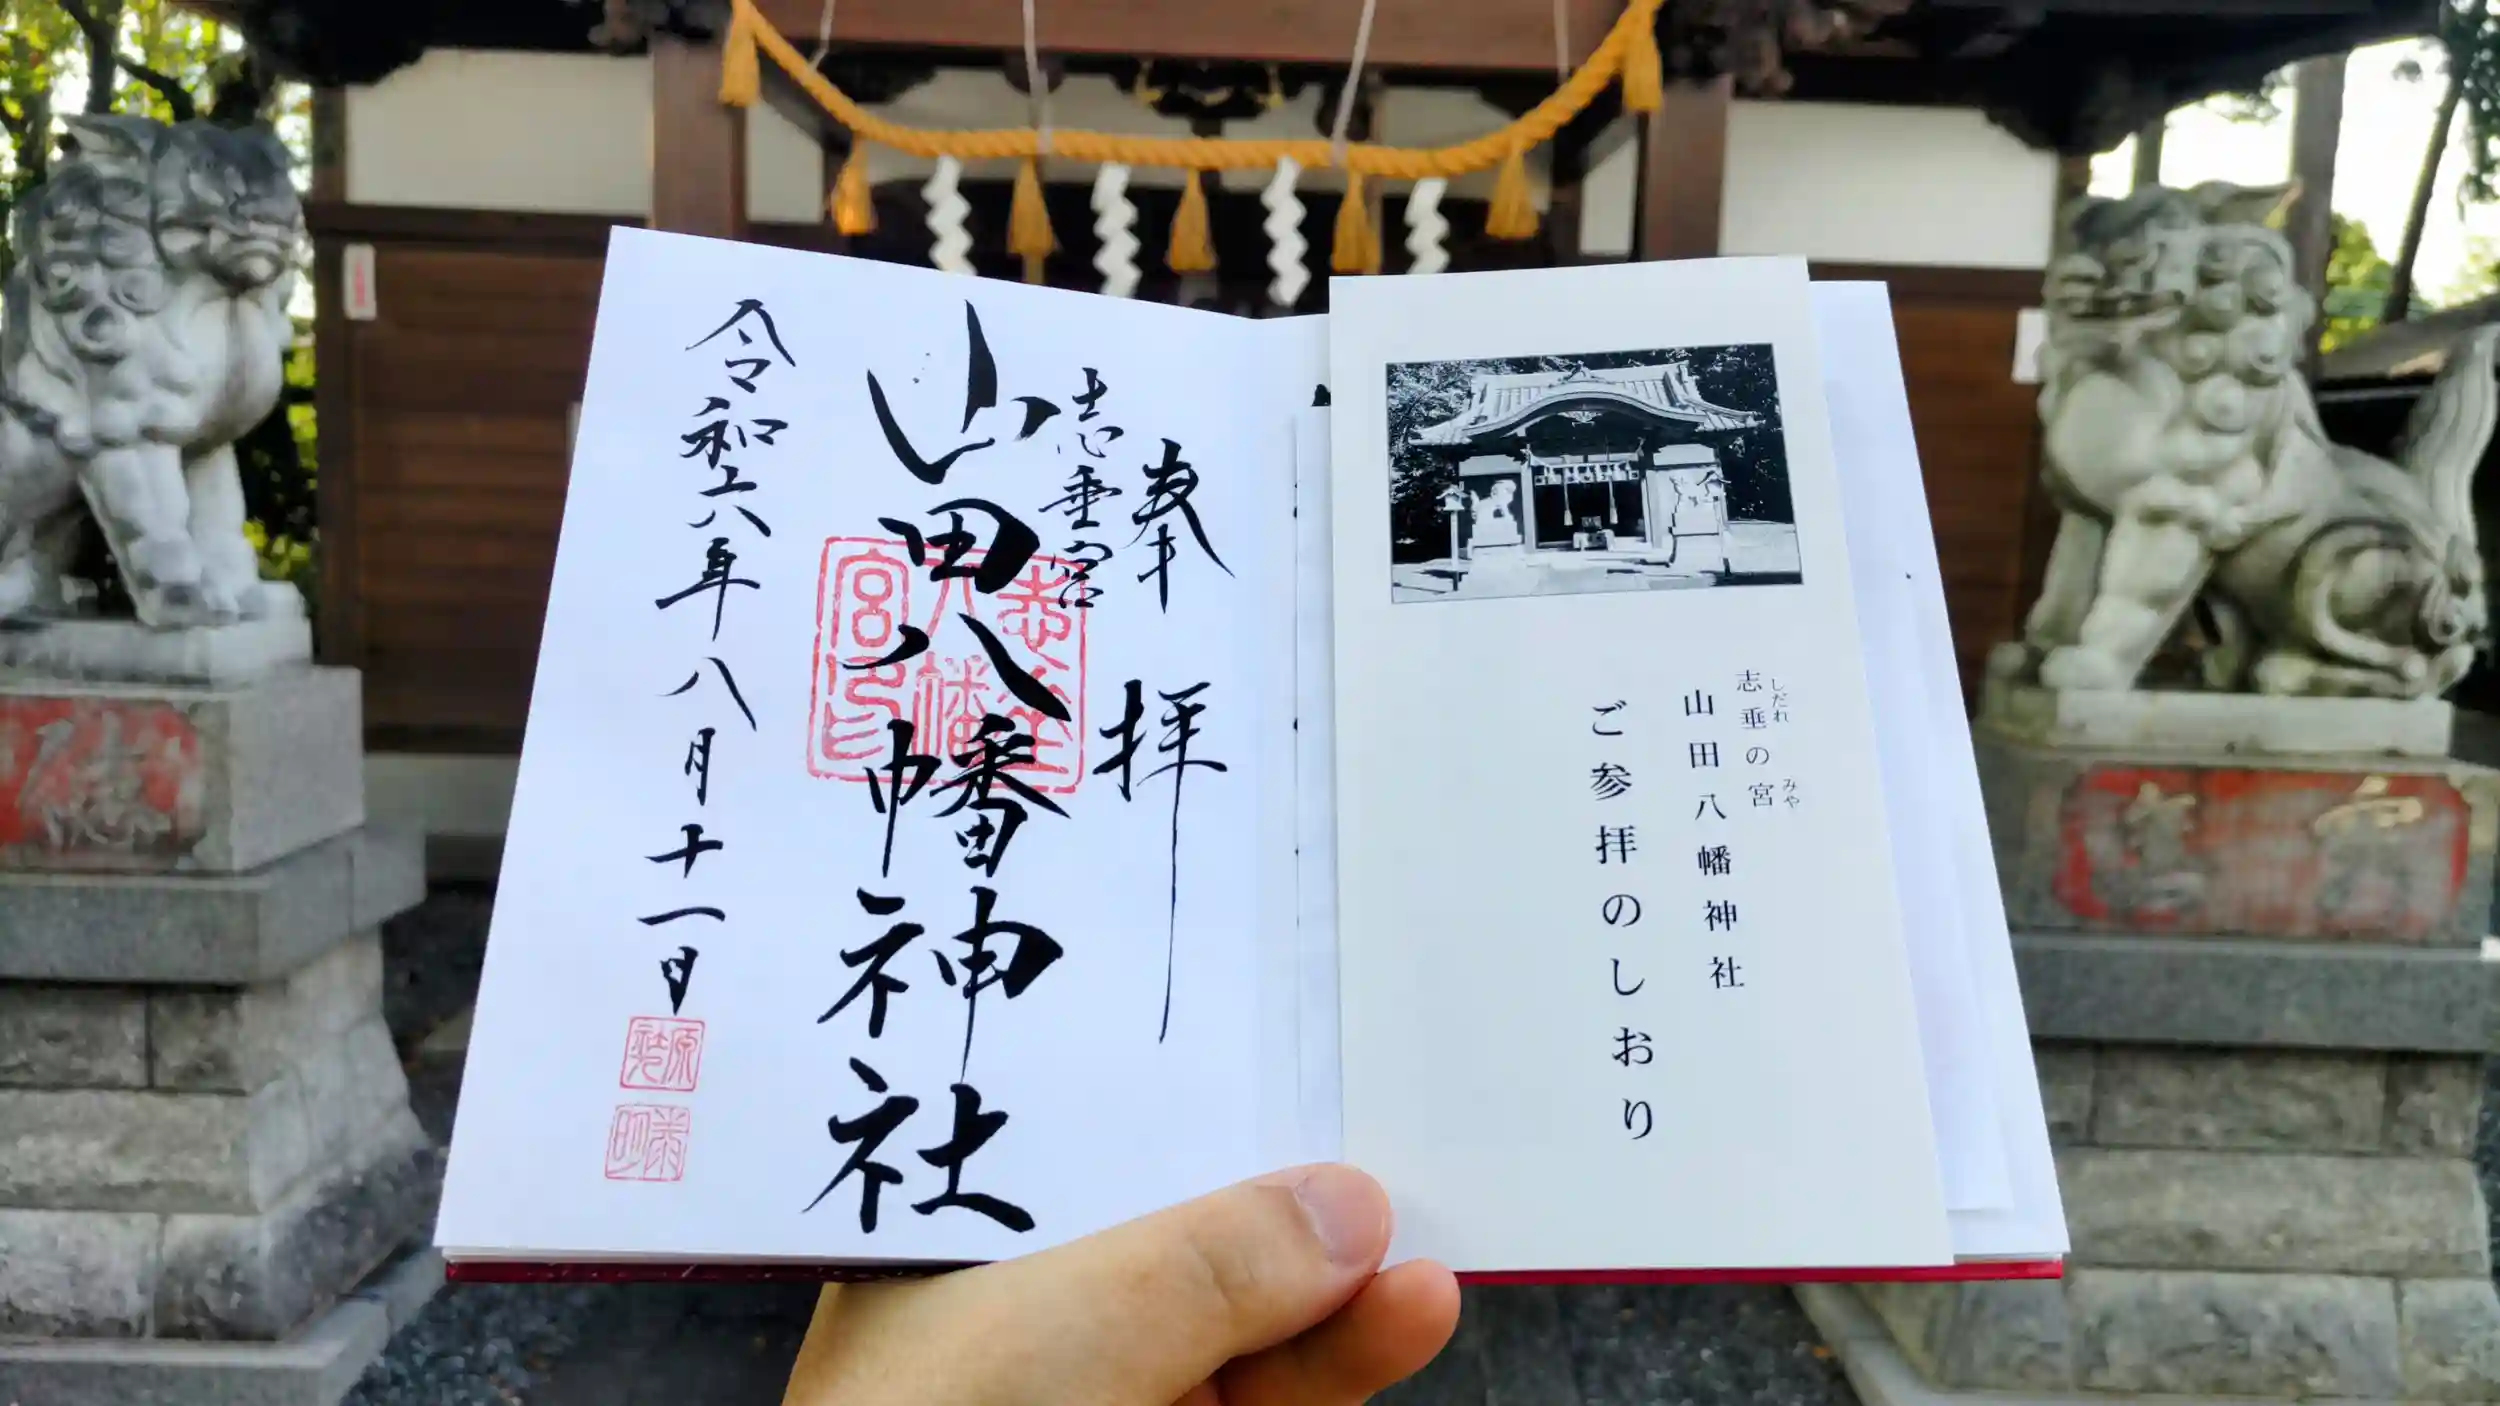 志垂の宮
しだれ
みや
山田八幡神社
ご参拝のしおり
奉拝
志垂宮
山田八幡神社
令和六年八月十一日